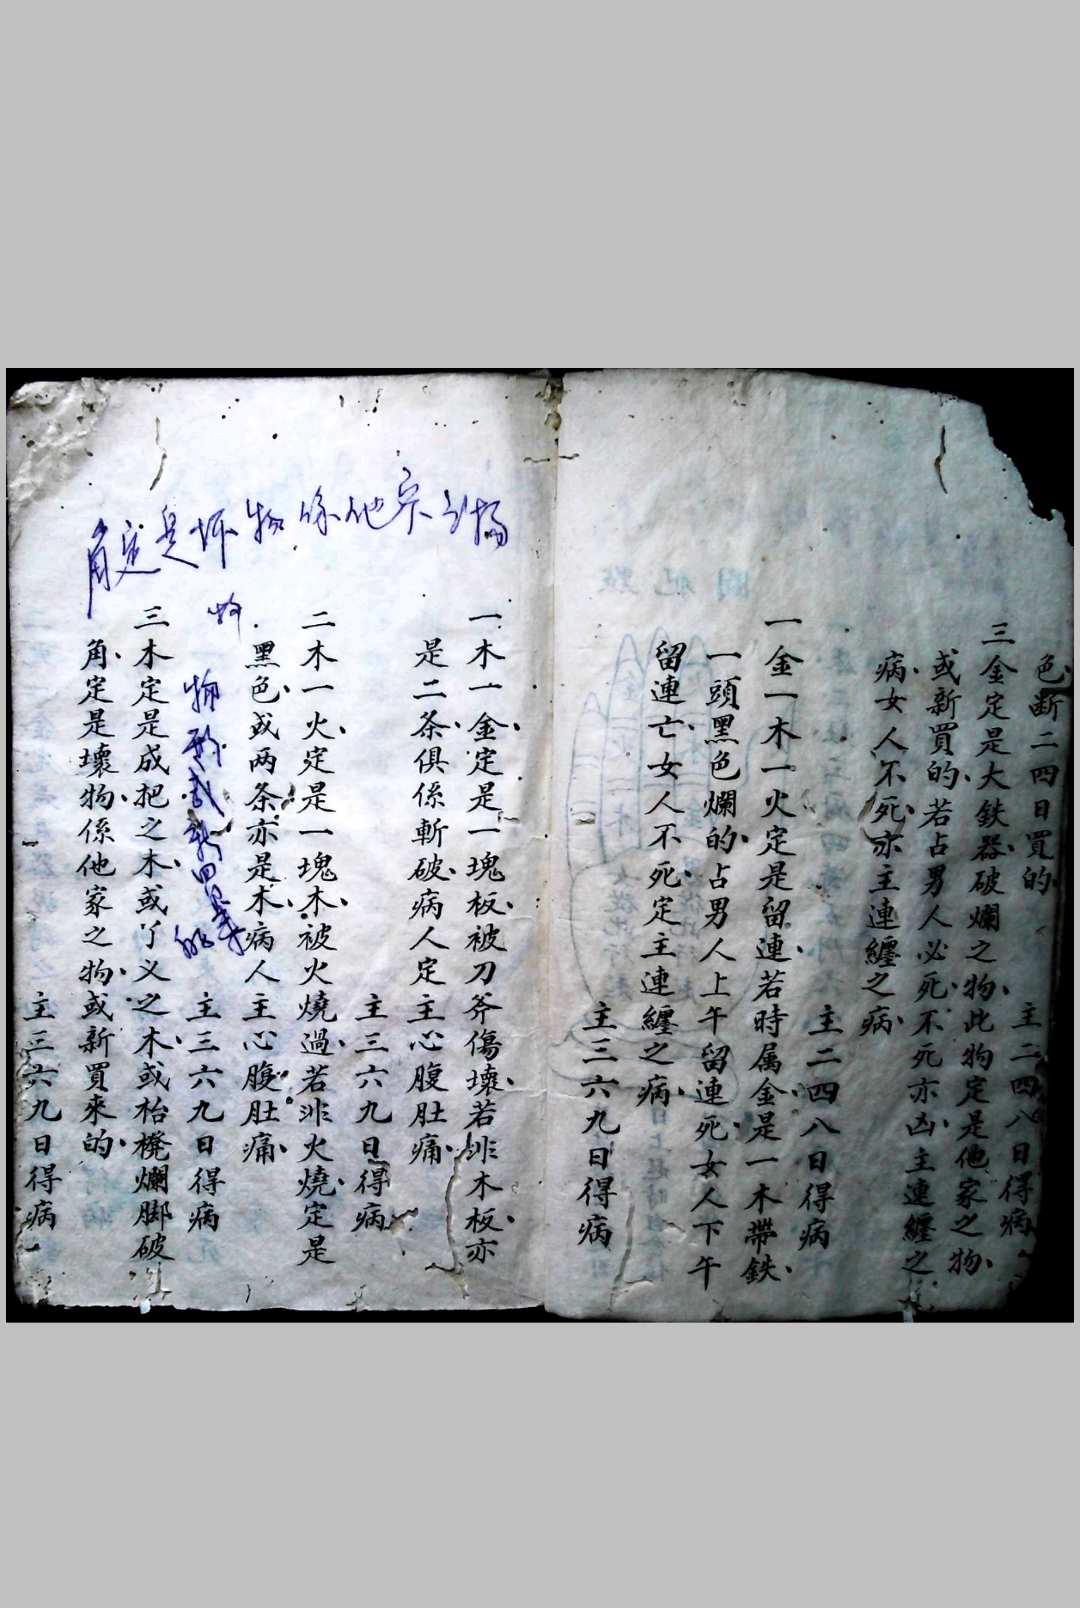 色断二四日買的
主二四八日得病
三金定是大鉄器破爛之物此物定是他家之物
或新買的若占男人必死不死亦凶主連纏之
病女人不死亦主連纏之病
主二四八日得病
一金一木一火定是留連若時属金是一木帶鉄
一頭黑色爛的占男人上午留連死女人下午
留連亡女人不死定主連纏之病
主三六九日得病
一木一金定是一塊板被刀斧傷壞若非木板亦
是二条俱係斬破病人定主心腹肚痛
主三六九日得病
二木一火定是一塊木被火燒過若非火燒定是
黑色或两条亦是木病人主心腹肚痛
主三六九日得病
三木定是成把之木或丫义之木或枱櫈爛脚破
角定是壞物係他家之物或新買來的
主三六九日得病
角定是坏物係他家之物
物